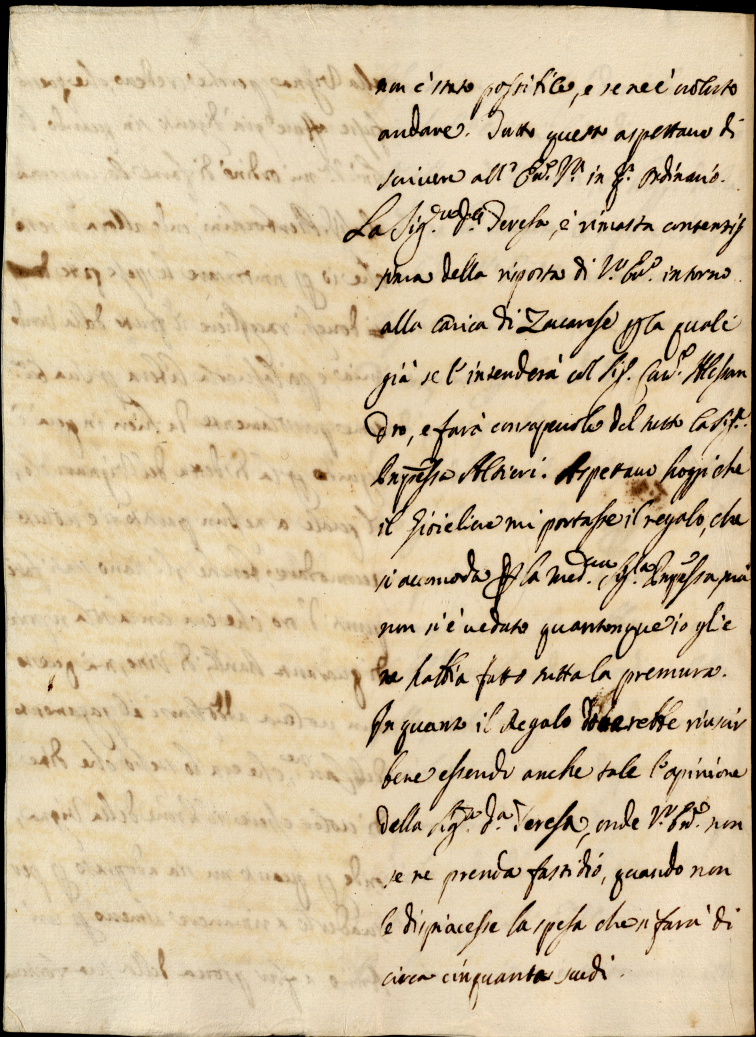 non è stato possibile, e se ne è voluto
andare. Tutto questo aspettavo di
scrivere all' Em.ª V.ª in q.º ordinario.
La Sig.ra D.a Teresa, è rimasta contentis
sima della risposta di V.ª Em.ª intorno
alla carica di Zacarese p la quale
già se l'intenderà col Sig. Cav.e Alesan
dro, e farà consapevole del tutto la Sig.ra
Altieri. Aspettavo hoggi che
il Gioieliere mi portasse il regalo, che
si accomoda p la med.ma Sig.ra, mà
non si è veduto quantonque io gl'e
ne habbia fatto tutta la premura.
In quanto il Regalo dovarebbe riuscir
bene essendo anche tale l'opinione
della Sig.ra D.a Teresa, onde V.ª Em.ª non
se ne prenda fastidio, quando non
le dispiacesse la spesa che si farà di
circa cinquanta scudi.